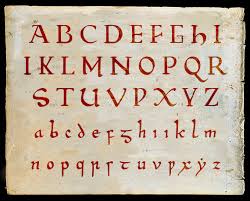 ABCDEFGhI
IKLMNOPQR
STUVVXYZ
abcdefghiıklm
nopqrſstuvpxẏz